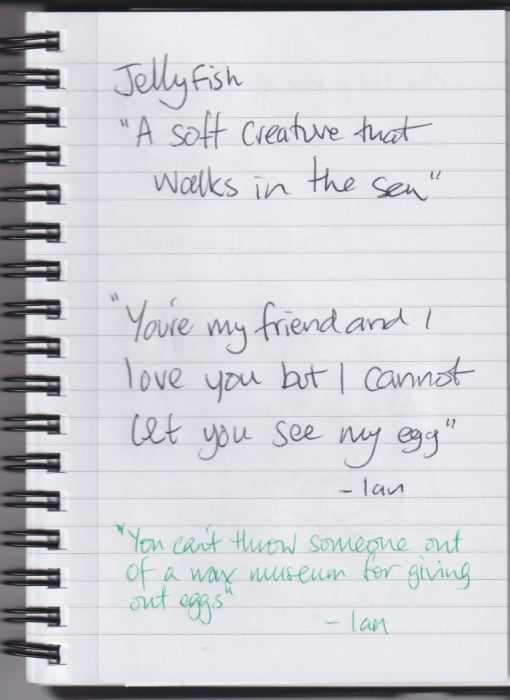 Jellyfish
"A soft creature that
walks in the sea"
"You're my friend and I
love you but I cannot
let you see my egg"
- Ian
"You can't throw someone out
of a wax museum for giving
out eggs"
- Ian